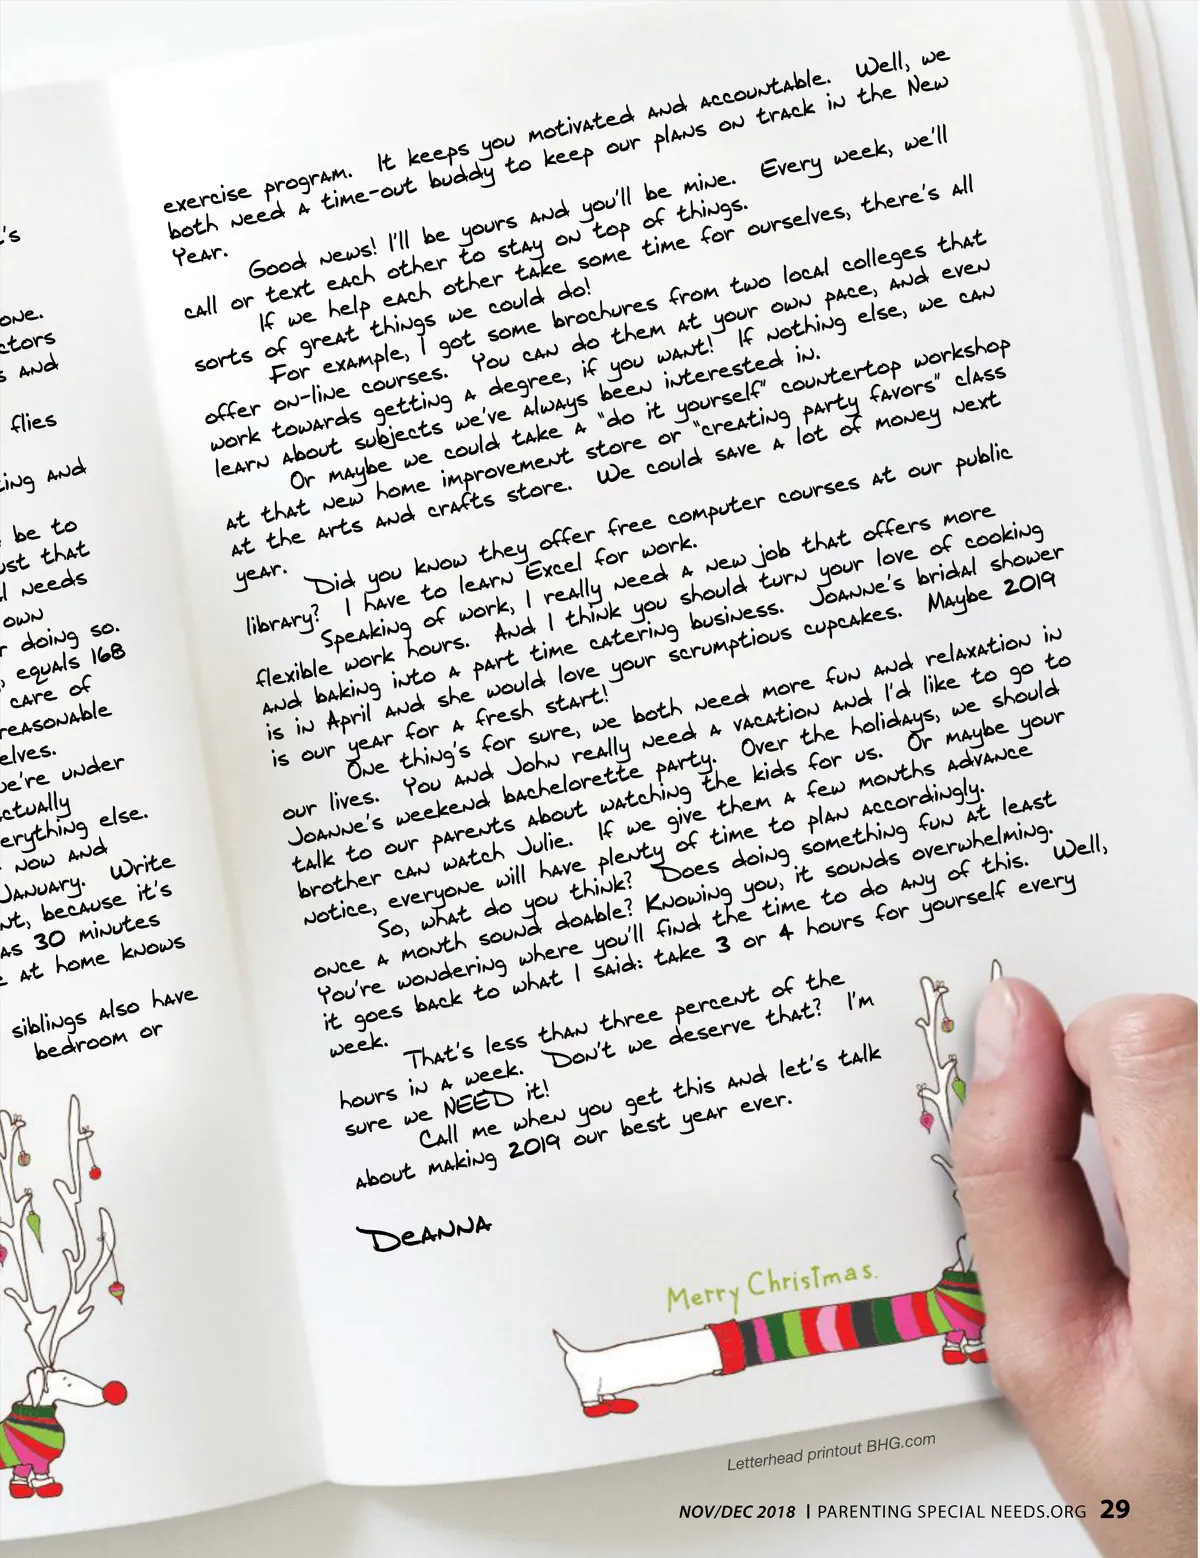 's
one.
ctors
s and
flies
ting and
be to
ust that
l needs
own
r doing so.
, equals 168
care of
reasonable
elves.
we're under
ctually
erything else.
now and
January. Write
nt, because it's
as 30 minutes
e at home knows
siblings also have
bedroom or
exercise program. It keeps you motivated and accountable. Well, we
both need a time-out buddy to keep our plans on track in the New
Year.
Good news! I'll be yours and you'll be mine. Every week, we'll
call or text each other to stay on top of things.
If we help each other take some time for ourselves, there's all
sorts of great things we could do!
For example, I got some brochures from two local colleges that
offer on-line courses. You can do them at your own pace, and even
work towards getting a degree, if you want! If nothing else, we can
learn about subjects we've always been interested in.
Or maybe we could take a "do it yourself" countertop workshop
at that new home improvement store or "creating party favors" class
at the arts and crafts store. We could save a lot of money next
year.
Did you know they offer free computer courses at our public
library? I have to learn Excel for work.
Speaking of work, I really need a new job that offers more
flexible work hours. And I think you should turn your love of cooking
and baking into a part time catering business. Joanne's bridal shower
is in April and she would love your scrumptious cupcakes. Maybe 2019
is our year for a fresh start!
One thing's for sure, we both need more fun and relaxation in
our lives. You and John really need a vacation and I'd like to go to
Joanne's weekend bachelorette party. Over the holidays, we should
talk to our parents about watching the kids for us. Or maybe your
brother can watch Julie. If we give them a few months advance
notice, everyone will have plenty of time to plan accordingly.
So, what do you think? Does doing something fun at least
once a month sound doable? Knowing you, it sounds overwhelming.
You're wondering where you'll find the time to do any of this. Well,
it goes back to what I said: take 3 or 4 hours for yourself every
week.
That's less than three percent of the
hours in a week. Don't we deserve that? I'm
sure we NEED it!
Call me when you get this and let's talk
about making 2019 our best year ever.
Deanna
Merry Christmas.
Letterhead printout BHG.com
NOV/DEC 2018 | PARENTING SPECIAL NEEDS.ORG 29